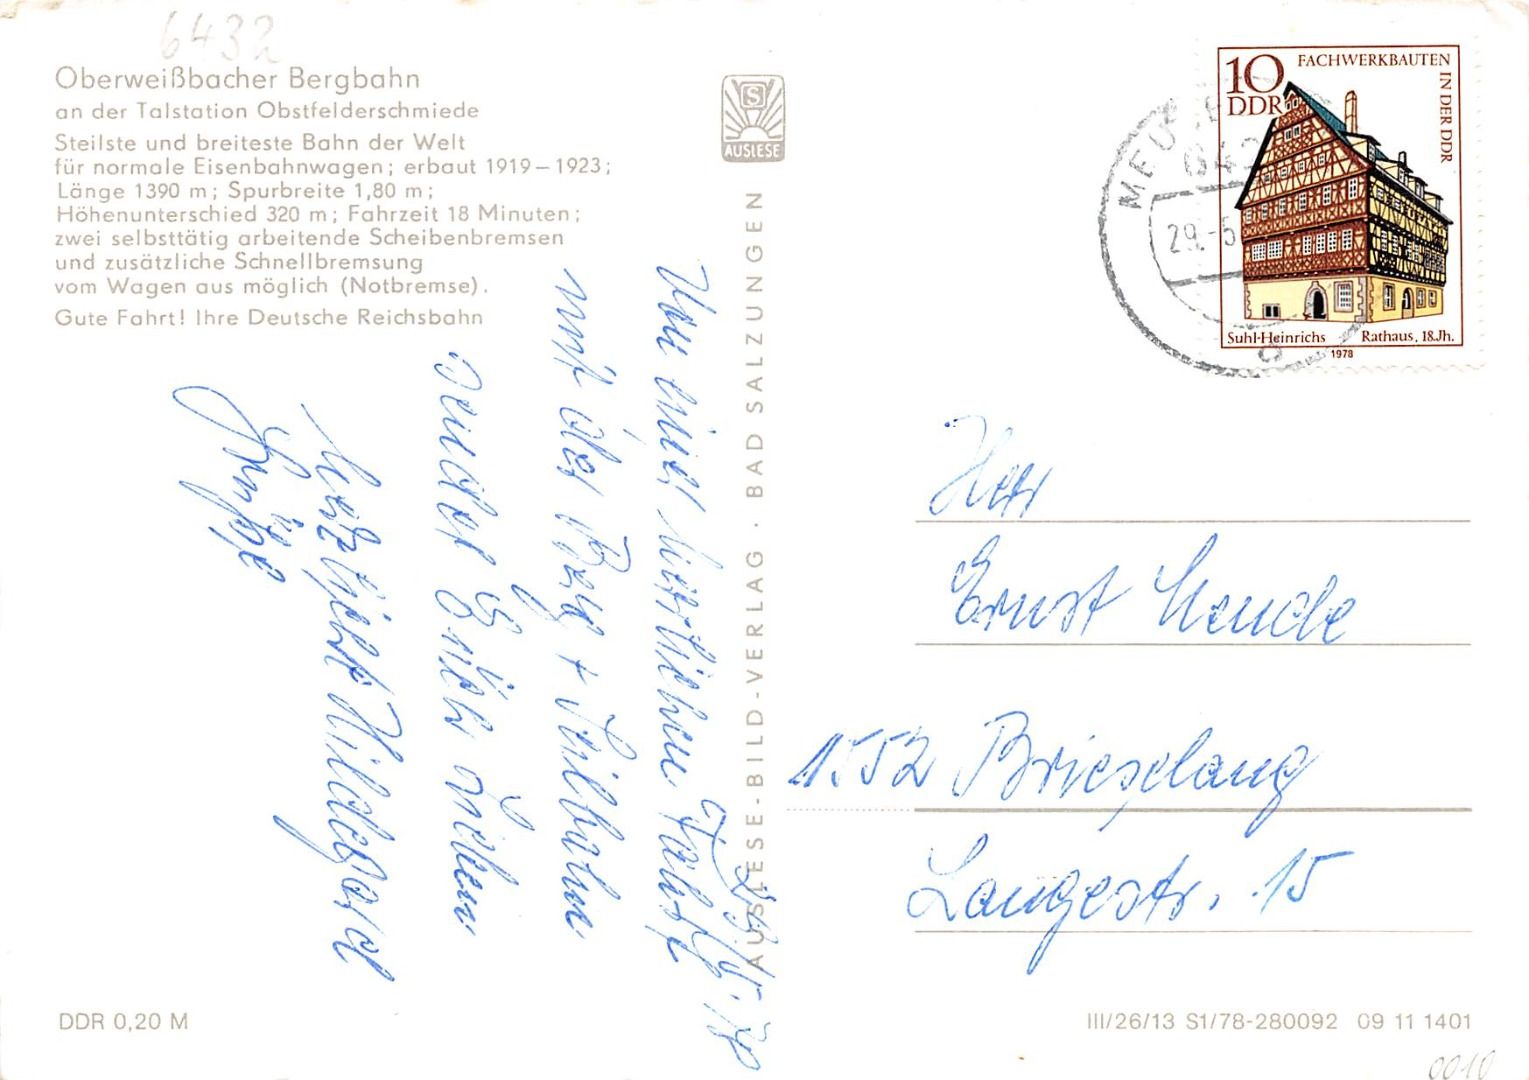 6432
Oberweißbacher Bergbahn
an der Talstation Obstfelderschmiede
Steilste und breiteste Bahn der Welt
für normale Eisenbahnwagen; erbaut 1919–1923;
Länge 1390 m; Spurbreite 1,80 m;
Höhenunterschied 320 m; Fahrzeit 18 Minuten;
zwei selbsttätig arbeitende Scheibenbremsen
und zusätzliche Schnellbremsung
vom Wagen aus möglich (Notbremse).
Gute Fahrt! Ihre Deutsche Reichsbahn
Von einer herrlichen Fahrt
mit der Berg + Seilbahn
sendet
herzlichst Hildegard
Grüße
DDR 0,20 M
S
AUSLESE
AUSLESE-BILD-VERLAG · BAD SALZUNGEN
29.-5
10
DDR
FACHWERKBAUTEN
IN DER DDR
Suhl-Heinrichs Rathaus, 18.Jh.
1978
Herr
Ernst
1552 Brieselang
Langestr. 15
III/26/13 S1/78-280092 09 11 1401
0010